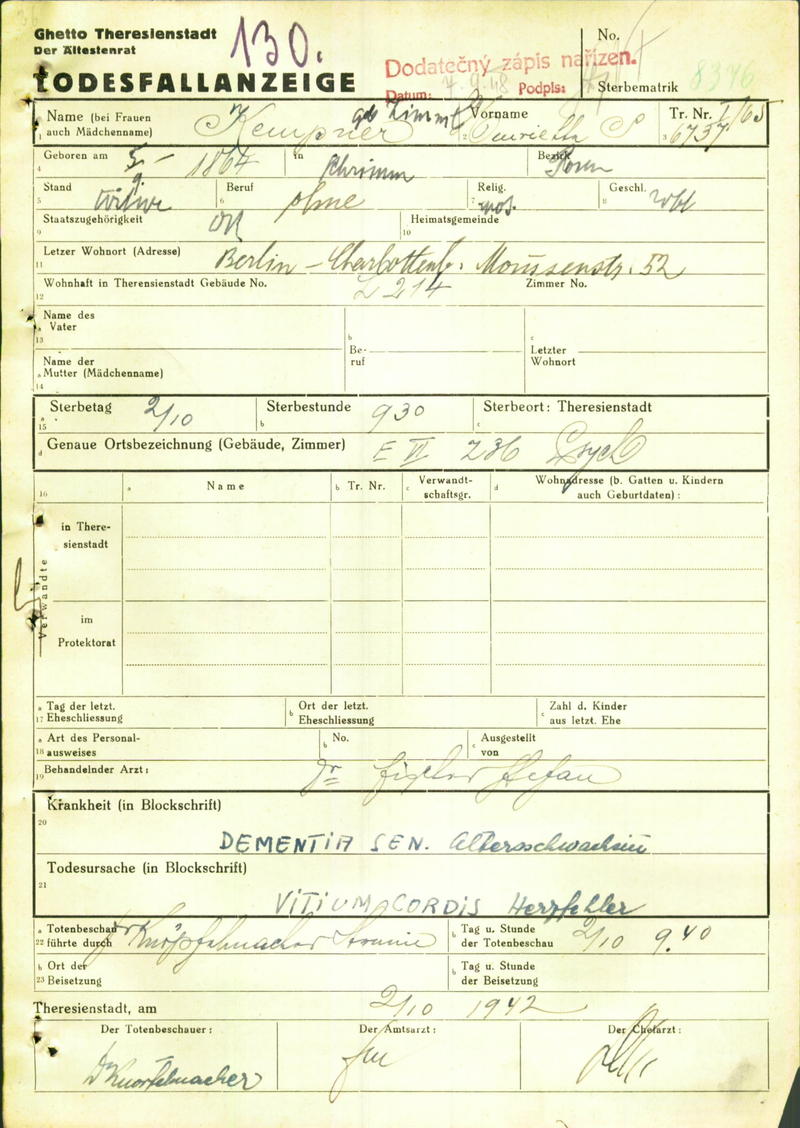 Ghetto Theresienstadt
Der Ältestenrat
130.
No.
TODESFALLANZEIGE
Dodatečný zápis nařízen.
Datum: 7.9.48 Podpis:
Sterbematrik 8376
Name (bei Frauen auch Mädchenname) Kempner geb Zimmt
Vorname Henrietta S
Tr. Nr. I/65
6737
Geboren am 5/9 - 1864 in Schrimm Bezirk Posen
Stand Witwe Beruf ohne Relig. mos. Geschl. wbl
Staatszugehörigkeit DR Heimatsgemeinde
Letzer Wohnort (Adresse) Berlin - Charlottenb. 52
Wohnhaft in Therensienstadt Gebäude No. L 214 Zimmer No.
Name des Vater
Be-ruf
Letzter Wohnort
Name der Mutter (Mädchenname)
Sterbetag 2/10 Sterbestunde 930 Sterbeort: Theresienstadt
Genaue Ortsbezeichnung (Gebäude, Zimmer) E VI 236 Psych
Name Tr. Nr. Verwandt-schaftsgr. Wohnadresse (b. Gatten u. Kindern auch Geburtdaten):
Verwandte
in There-sienstadt
im Protektorat
Tag der letzt. Eheschliessung
Ort der letzt. Eheschliessung
Zahl d. Kinder aus letzt. Ehe
Art des Personal-ausweises
No.
Ausgestellt von
Behandelnder Arzt: Dr Stefan
Krankheit (in Blockschrift)
DEMENTIA SEN. Altersschwachsinn
Todesursache (in Blockschrift)
VITIUM CORDIS Herzfehler
Totenbeschau führte durch Dr Knöpfelmacher
Tag u. Stunde der Totenbeschau 2/10 9.40
Ort der Beisetzung
Tag u. Stunde der Beisetzung
Theresienstadt, am 2/10 1942
Der Totenbeschauer: Der Amtsarzt: Der Chefarzt:
Dr Knöpfelmacher